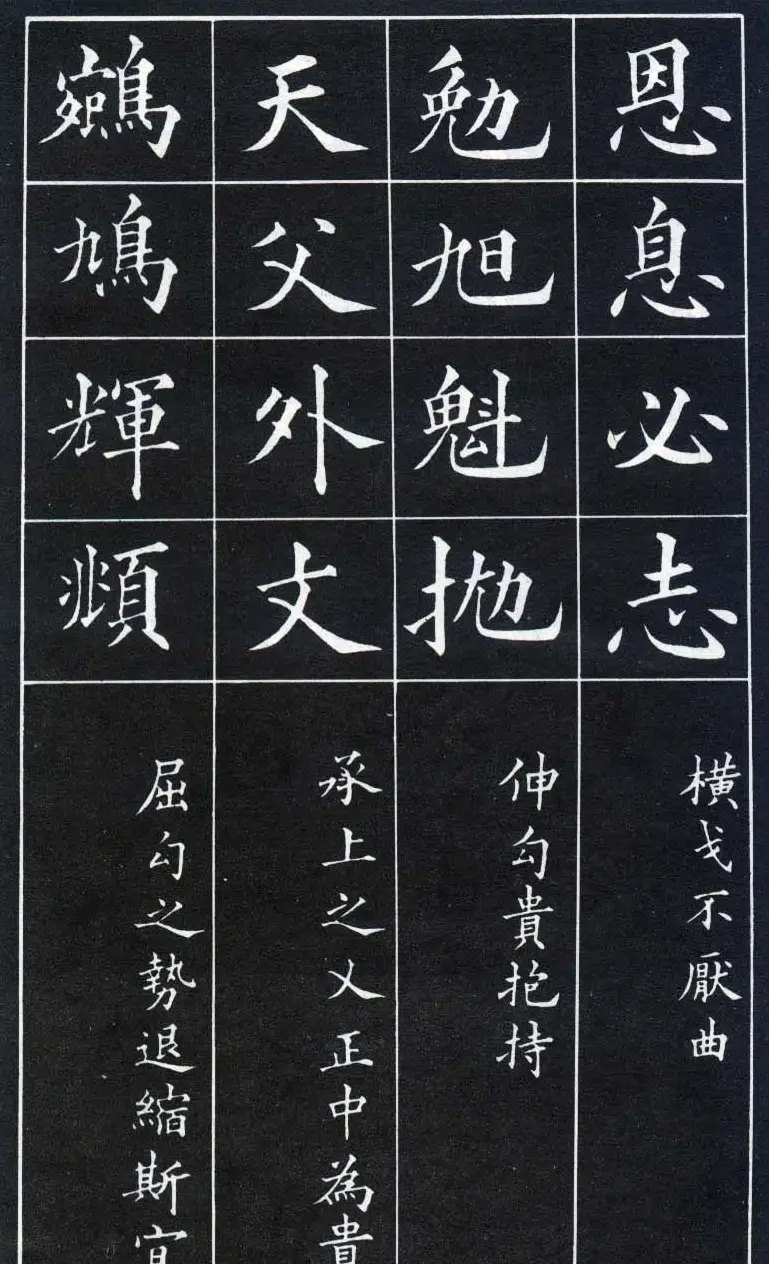 恩息必志
橫戈不厭曲
勉旭魁抛
伸勾貴抱持
天父外文
承上之乂正中為貴
鳩輝頫
屈勾之勢退縮斯宜